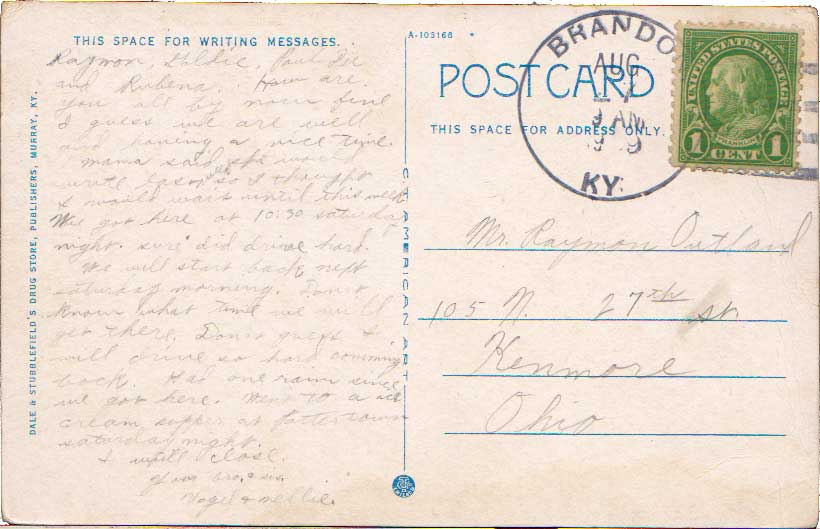 THIS SPACE FOR WRITING MESSAGES.
Raymon, Goldie, Paul Lee
and Rubena, How are
you all by now fine
I guess we are well
and having a nice time.
mama said she would
write last week so I thought
I would wait until this week
We got here at 10:30 saturday
night. sure did drive hard.
We will start back next
saturday morning. Don't
know what time we will
get there, Don't guess I
will drive so hard comming
back. Had one rain since
we got here. Went to a ice
cream supper at Pottertown
saturday night.
I will close.
your bro. & sis.
& Nellie.
DALE & STUBBLEFIELD'S DRUG STORE, PUBLISHERS, MURRAY, KY.
C.T. AMERICAN ART
A-103168
POSTCARD
THIS SPACE FOR ADDRESS ONLY.
BRANDO
AUG
27
9 AM
KY.
UNITED STATES POSTAGE
FRANKLIN
1 CENT 1
Mr. Raymon Outland
105 N. 27th st
Kenmore
Ohio